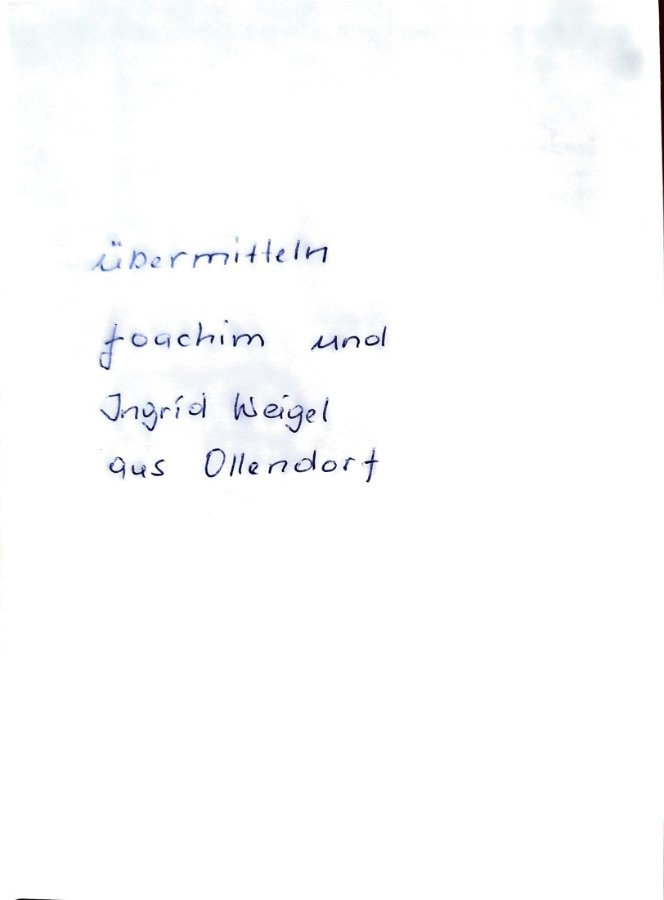 übermitteln
Joachim und
Ingrid Weigel
aus Ollendorf